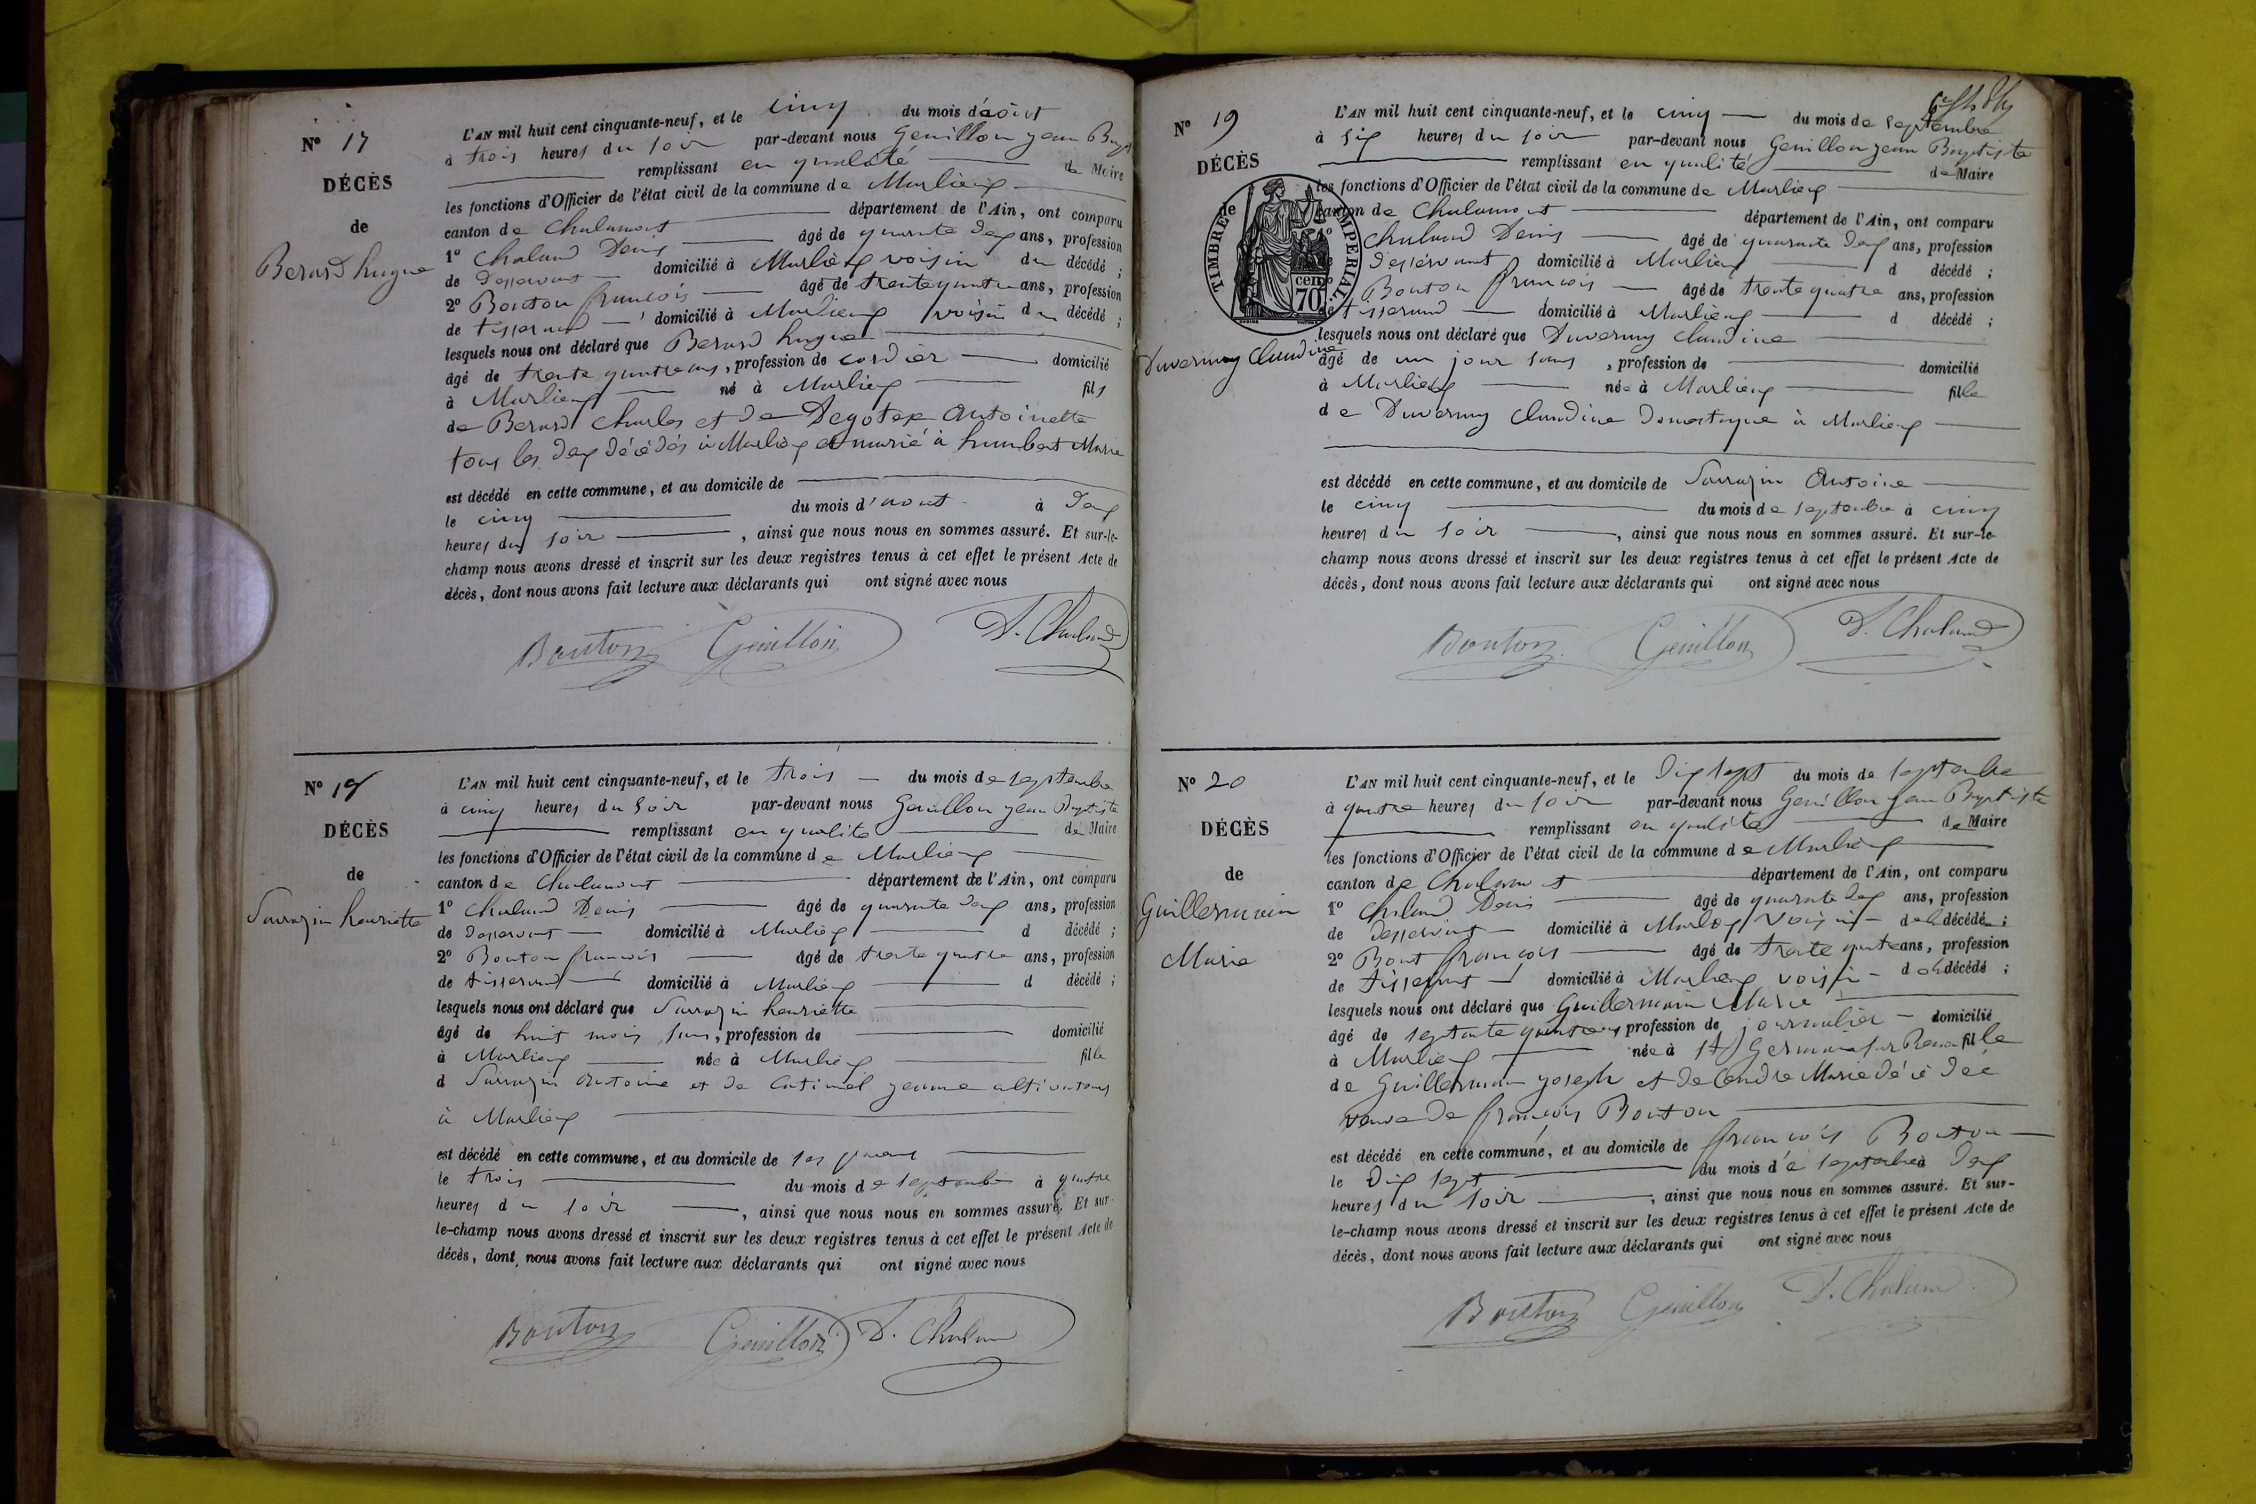 N° 17
DÉCÈS
de
Berard hugue
L'AN mil huit cent cinquante-neuf, et le cinq du mois d'août
à trois heures du soir par-devant nous Genillon jean Bapt
remplissant en qualité de Maire
les fonctions d'Officier de l'état civil de la commune de Marlieux
canton de Chalamont département de l'Ain, ont comparu
1° Chaland Denis âgé de quarante deux ans, profession
de desservant domicilié à Marlieux voisin du décédé ;
2° Bouton françois âgé de trente quatre ans, profession
de tisserand domicilié à Marlieux voisin du décédé ;
lesquels nous ont déclaré que Berard hugue
âgé de trente quatre ans, profession de cordier domicilié
à Marlieux né à Marlieux fils
de Berard Charles et de Degotex Antoinette
tous les deux décédés à Marlieux et marié à humbert Marie
est décédé en cette commune, et au domicile de
le cinq du mois d'aout à deux
heures du soir , ainsi que nous nous en sommes assuré. Et sur-le-
champ nous avons dressé et inscrit sur les deux registres tenus à cet effet le présent Acte de
décès, dont nous avons fait lecture aux déclarants qui ont signé avec nous
Bouton Genillon D. Chaland
N° 18
DÉCÈS
de
Sarrazin henriette
L'AN mil huit cent cinquante-neuf, et le trois du mois de septembre
à cinq heures du soir par-devant nous Genillon jean Baptiste
remplissant en qualité de Maire
les fonctions d'Officier de l'état civil de la commune de Marlieux
canton de Chalamont département de l'Ain, ont comparu
1° Chaland Denis âgé de quarante deux ans, profession
de desservant domicilié à Marlieux d décédé ;
2° Bouton françois âgé de trente quatre ans, profession
de tisserand domicilié à Marlieux d décédé ;
lesquels nous ont déclaré que Sarrazin henriette
âgé de huit mois sans, profession de domicilié
à Marlieux née à Marlieux fille
d Sarrazin Antoine et de Catimel jeanne cultivateurs
à Marlieux
est décédé en cette commune, et au domicile de ses parens
le trois du mois de septembre à quatre
heures du soir , ainsi que nous nous en sommes assuré. Et sur-
le-champ nous avons dressé et inscrit sur les deux registres tenus à cet effet le présent Acte de
décès, dont nous avons fait lecture aux déclarants qui ont signé avec nous
Bouton Genillon D. Chaland
N° 19
DÉCÈS
de
Duvernay Claudine
TIMBRE IMPERIAL
70 cen.
L'AN mil huit cent cinquante-neuf, et le cinq du mois de septembre
à six heures du soir par-devant nous Genillon jean Baptiste
remplissant en qualité de Maire
les fonctions d'Officier de l'état civil de la commune de Marlieux
canton de Chalamont département de l'Ain, ont comparu
1° Chaland Denis âgé de quarante deux ans, profession
de desservant domicilié à Marlieux d décédé ;
2° Bouton françois âgé de trente quatre ans, profession
de tisserand domicilié à Marlieux d décédé ;
lesquels nous ont déclaré que Duvernay Claudine
âgé de un jour sans , profession de domicilié
à Marlieux née à Marlieux fille
de Duvernay Claudine domestique à Marlieux
est décédé en cette commune, et au domicile de Sarrazin Antoine
le cinq du mois de septembre à cinq
heures du soir , ainsi que nous nous en sommes assuré. Et sur-le-
champ nous avons dressé et inscrit sur les deux registres tenus à cet effet le présent Acte de
décès, dont nous avons fait lecture aux déclarants qui ont signé avec nous
Bouton Genillon D. Chaland
N° 20
DÉCÈS
de
Guillermain
Marie
L'AN mil huit cent cinquante-neuf, et le dix sept du mois de septembre
à quatre heures du soir par-devant nous Genillon jean Baptiste
remplissant en qualité de Maire
les fonctions d'Officier de l'état civil de la commune de Marlieux
canton de Chalamont département de l'Ain, ont comparu
1° Chaland Denis âgé de quarante deux ans, profession
de desservant domicilié à Marlieux voisin de la décédée ;
2° Bout françois âgé de trente quatre ans, profession
de tisserant domicilié à Marlieux voisin d la décédé ;
lesquels nous ont déclaré que Guillermain Marie
âgé de septante quatre ans, profession de journalier domicilié
à Marlieux née à St Germain sur Renon fille
de Guillermain joseph et de Cendre Marie décédée
veuve de françois Bouton
est décédé en cette commune, et au domicile de françois Bouton
le dix sept du mois de septembre à deux
heures du soir , ainsi que nous nous en sommes assuré. Et sur-
le-champ nous avons dressé et inscrit sur les deux registres tenus à cet effet le présent Acte de
décès, dont nous avons fait lecture aux déclarants qui ont signé avec nous
Bouton Genillon D. Chaland